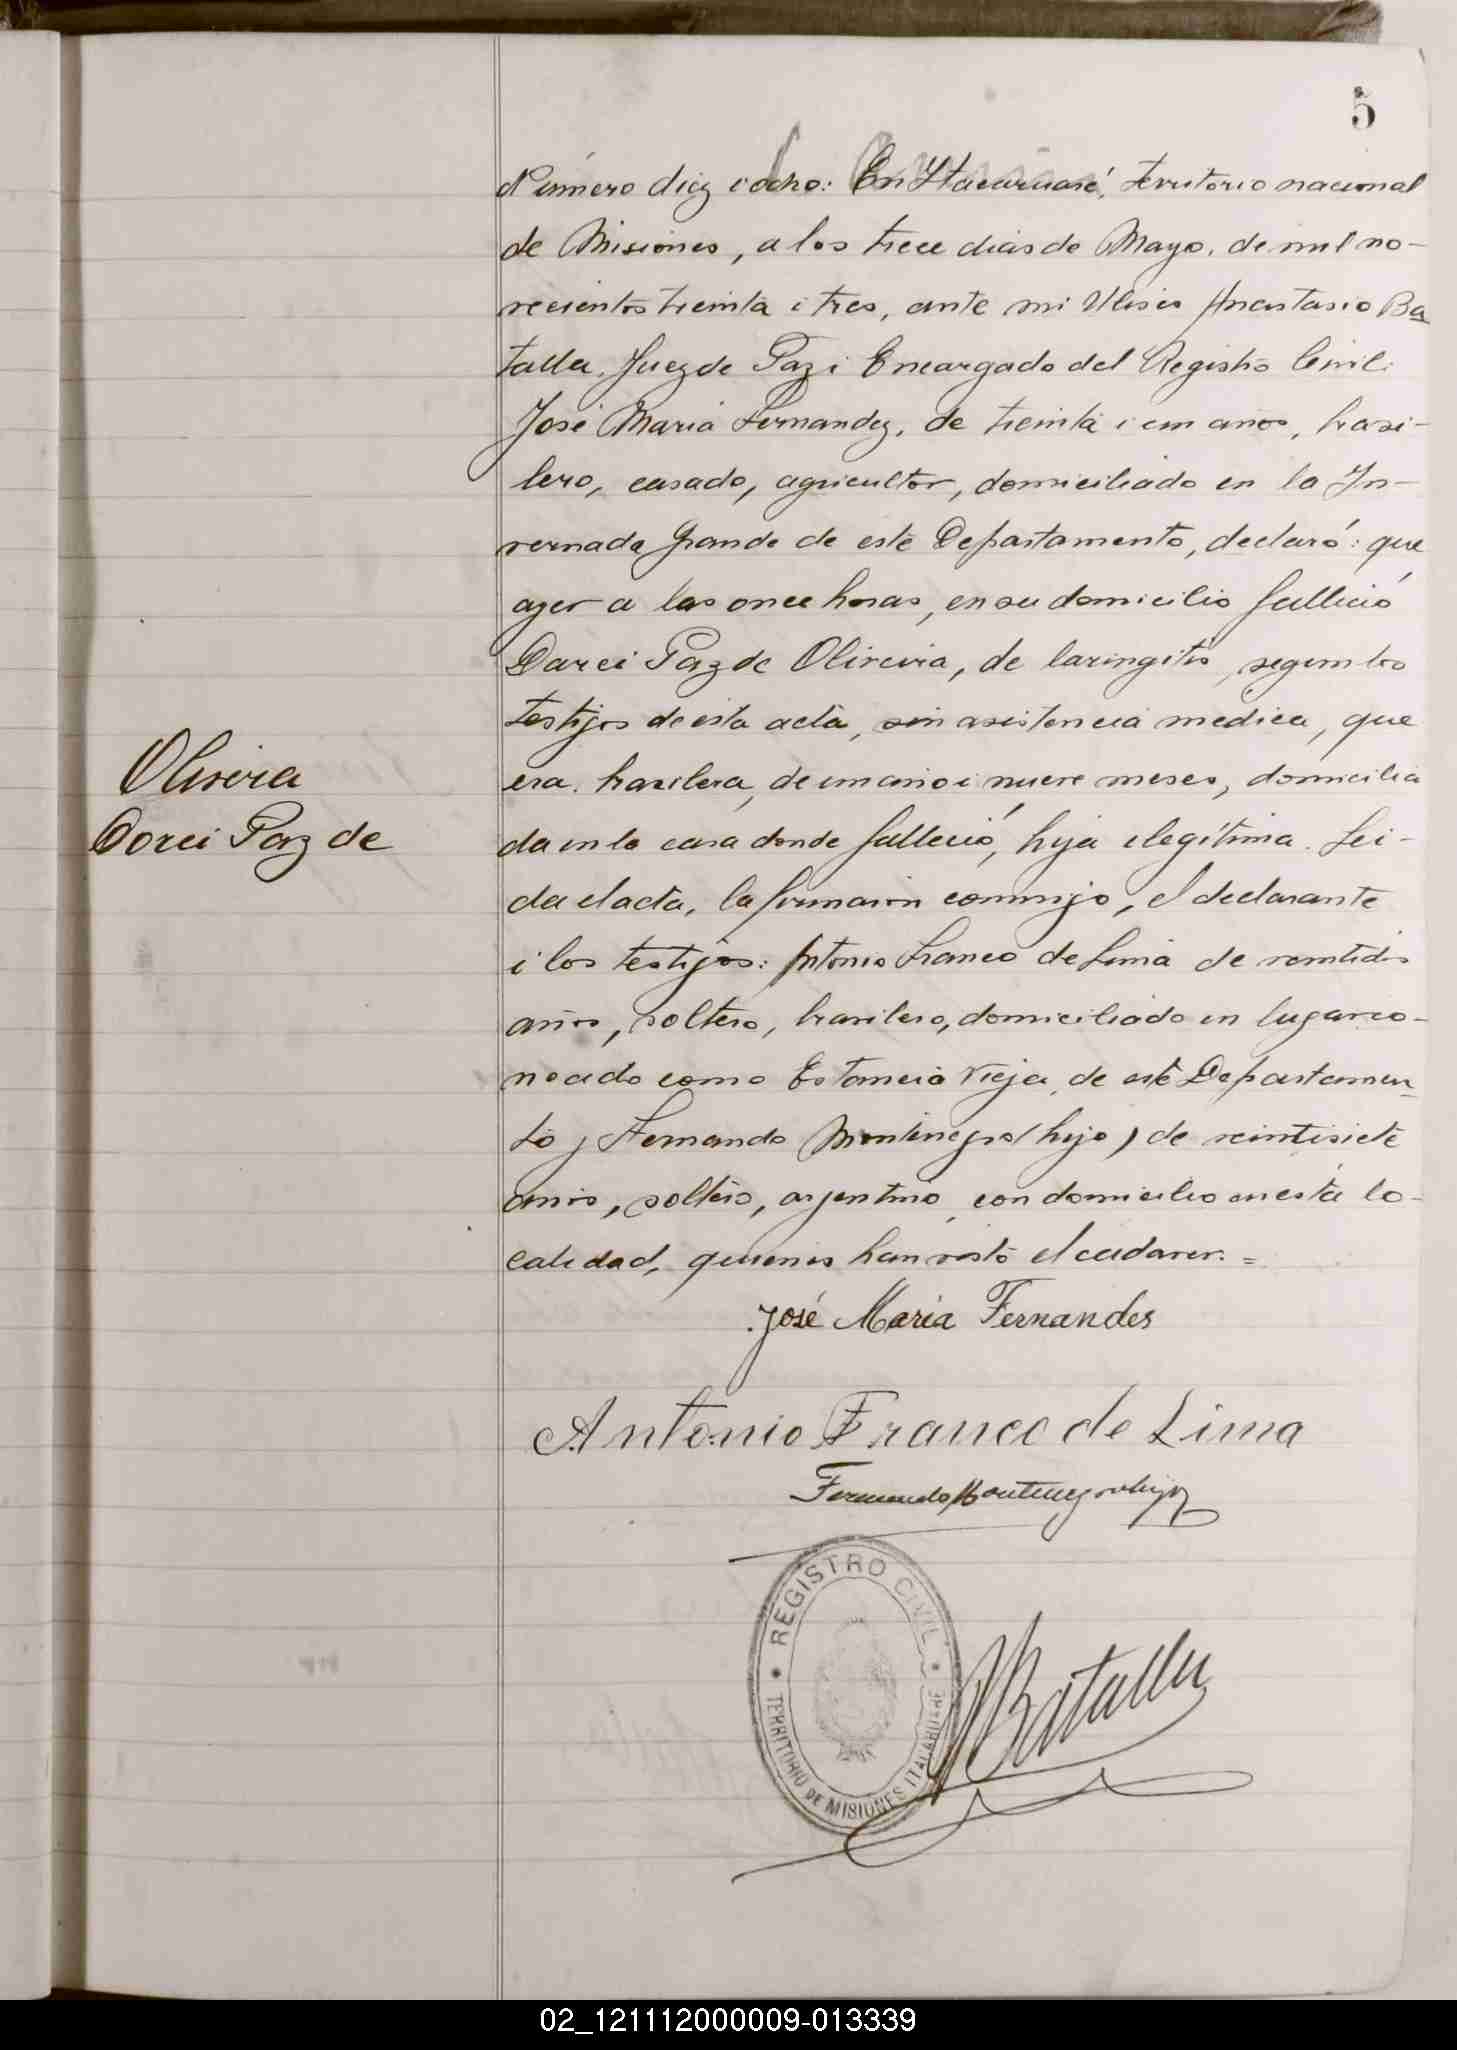 5
Número diez i ocho: En Itacaruaré, territorio nacional
de Misiones, a los trece dias de Mayo, de mil no-
vecientos treinta i tres, ante mi Ulises Anastasio Ba
talla, Juez de Paz i Encargado del Registro Civil:
José Maria Fernandez, de treinta i un años, brasi-
lero, casado, agricultor, domiciliado en la In-
vernada Grande de este Departamento, declaró: que
ayer a las once horas, en su domicilio falleció
Darci Paz de Oliveira, de laringitis, segun los
testigos de esta acta, sin asistencia medica, que
Oliveira
era brasilera, de un año i nueve meses, domicilia
Dorci Paz de
da en la casa donde falleció, hija ilegítima. Lei-
da el acta, la firmaron conmigo, el declarante
i los testigos: Antonio Franco de Lima de veintidos
años, soltero, brasilero, domiciliado en lugar co-
nocido como Estancia Vieja, de este Departamen-
to y Fernando Montenegro (hijo) de veintisiete
años, soltero, argentino, con domicilio en esta lo-
calidad, quienes han visto el cadaver.=
José Maria Fernandes
Antonio Franco de Lima
Fernando Montenegro hijo
REGISTRO CIVIL
TERRITORIO DE MISIONES ITACARUARE
Batalla
02_121112000009-013339